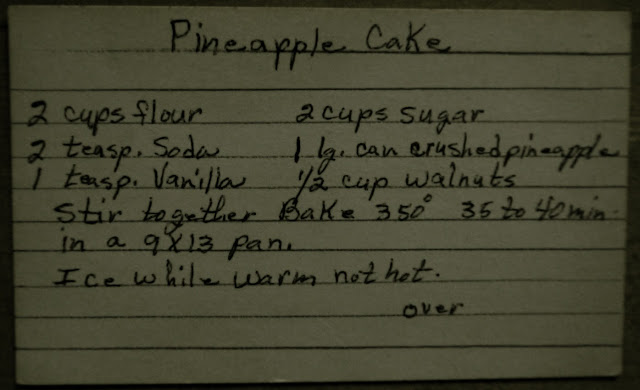 Pineapple Cake
2 cups flour 2 cups sugar
2 teasp. Soda 1 lg. can crushed pineapple
1 teasp. Vanilla 1/2 cup walnuts
Stir together Bake 350° 35 to 40 min.
in a 9X13 pan.
Ice while warm not hot.
over